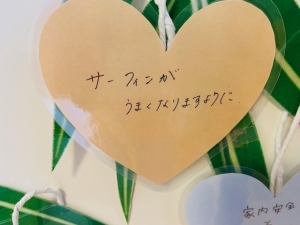 サーフィンが
うまくなりますように.
家内安全